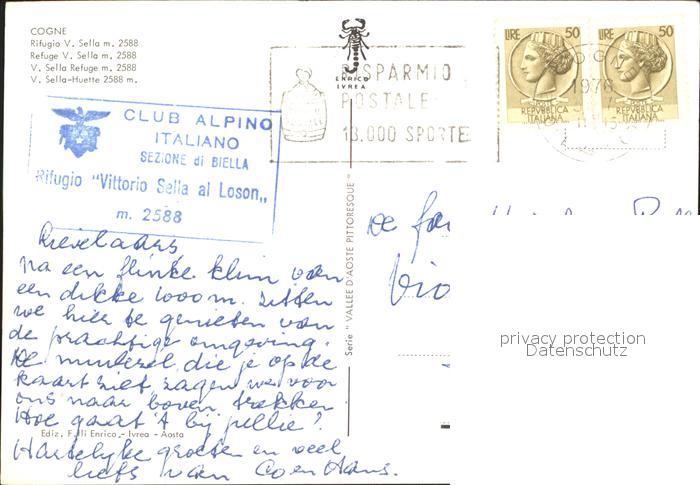 COGNE
Rifugio V. Sella m. 2588
Refuge V. Sella m. 2588
V. Sella Refuge m. 2588
V. Sella-Huette 2588 m.
ENRICO
IVREA
RISPARMIO
POSTALE
13.000 SPORTE
LIRE 50
REPVBBLICA
ITALIANA
LIRE 50
REPVBBLICA
ITALIANA
1976
CLUB ALPINO
ITALIANO
SEZIONE di BIELLA
Rifugio "Vittorio Sella al Loson„
m. 2588
Serie " VALLEE D'AOSTE PITTORESQUE "
De fam
Vio
na een flinke klim van
een dikke 1000 m. zitten
we hier te genieten van
de prachtige omgeving.
De muilezel die je op de
kaart ziet zagen we voor
ons naar boven trekken
Hoe gaat 't bij jullie?
Ediz. F.lli Enrico - Ivrea - Aosta
Hartelijke groeten en veel
liefs van Coen Hans.
privacy protection
Datenschutz